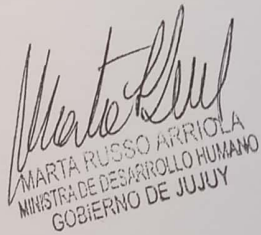 MARTA RUSSO ARRIOLA
MINISTRA DE DESARROLLO HUMANO
GOBIERNO DE JUJUY